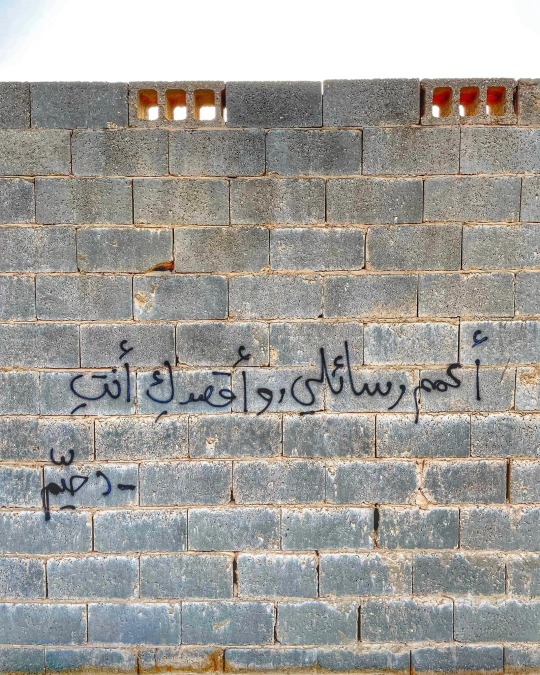 أعمم رسائلي، وأقصدكِ أنتِ
- رحيّم